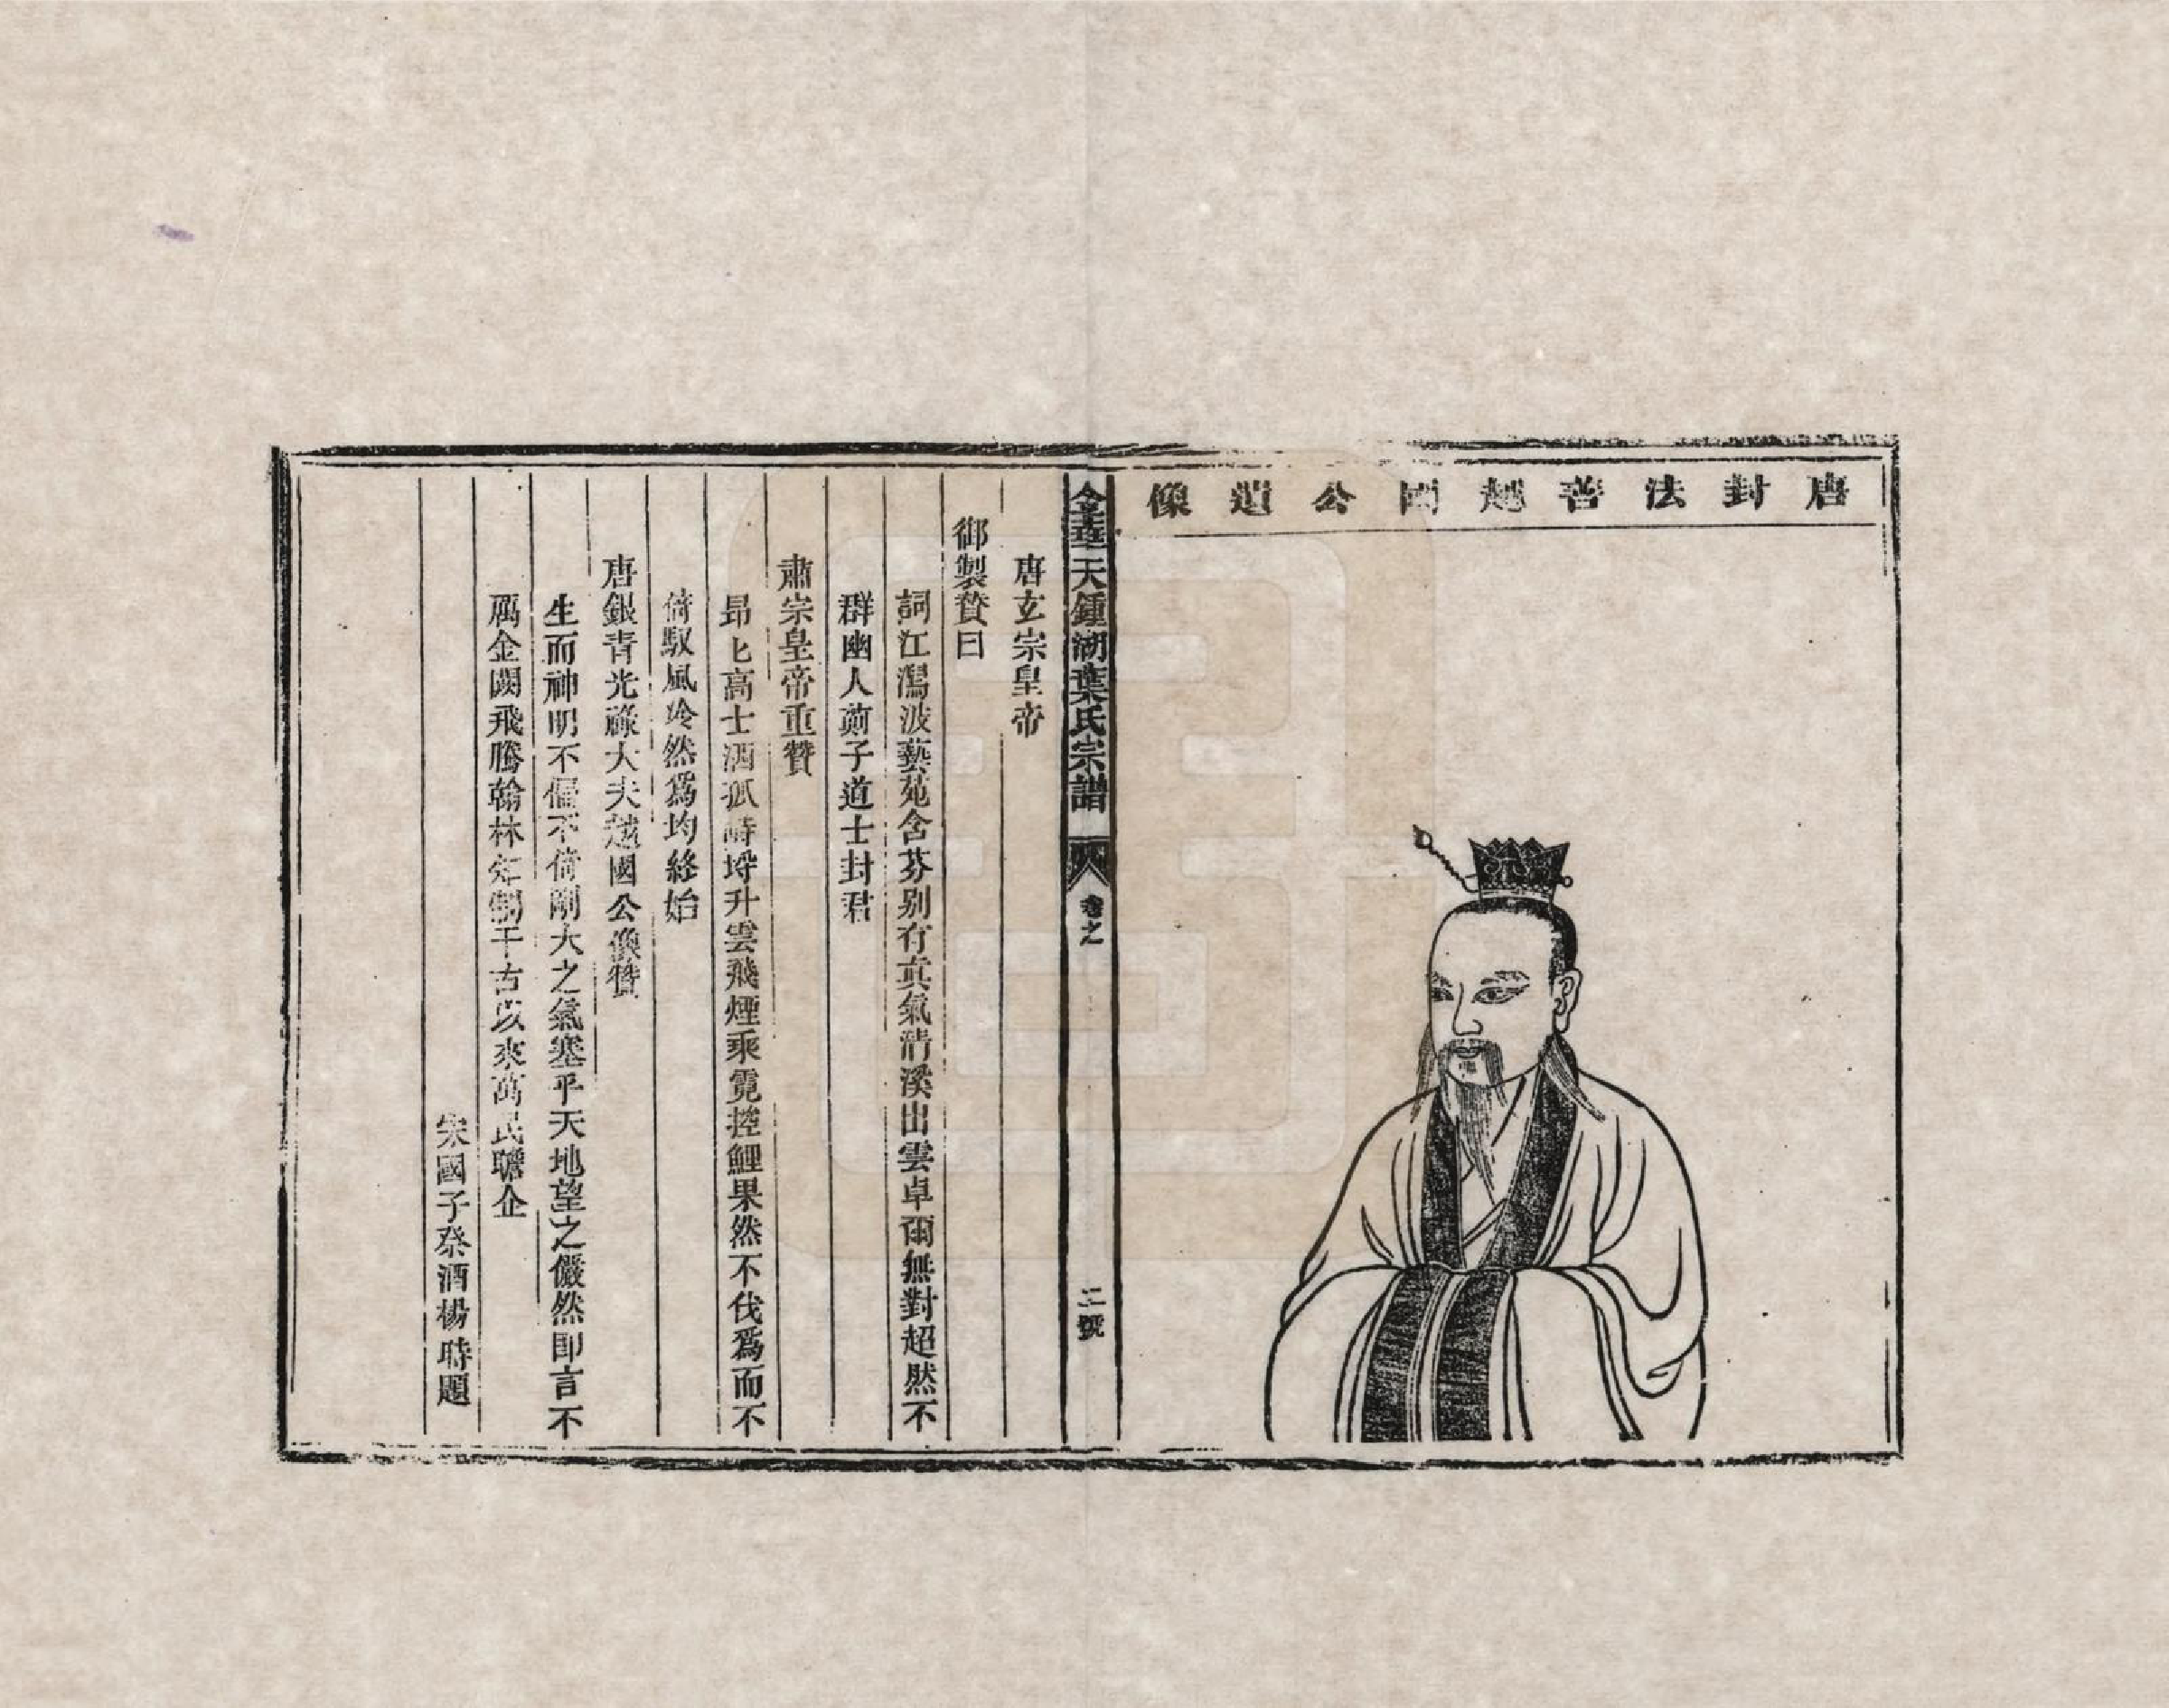 唐封法善越國公遺像
金華天鍾湖葉氏宗譜
卷之
二號
唐玄宗皇帝
御製贊曰
詞江瀉波藝苑含芬别有真氣清溪出雲卓爾無對超然不
群幽人蒭子道士封君
肅宗皇帝重贊
昂匕高士洒孤峙埒升雲飛煙乘霓控鯉果然不伐爲而不
倚馭風泠然爲均終始
唐銀青光祿大夫越國公像贊
生而神明不偃不倚剛大之氣塞乎天地望之儼然即言不
厲金闕飛騰翰林 制千古以來萬民瞻企
宋國子祭酒楊時題